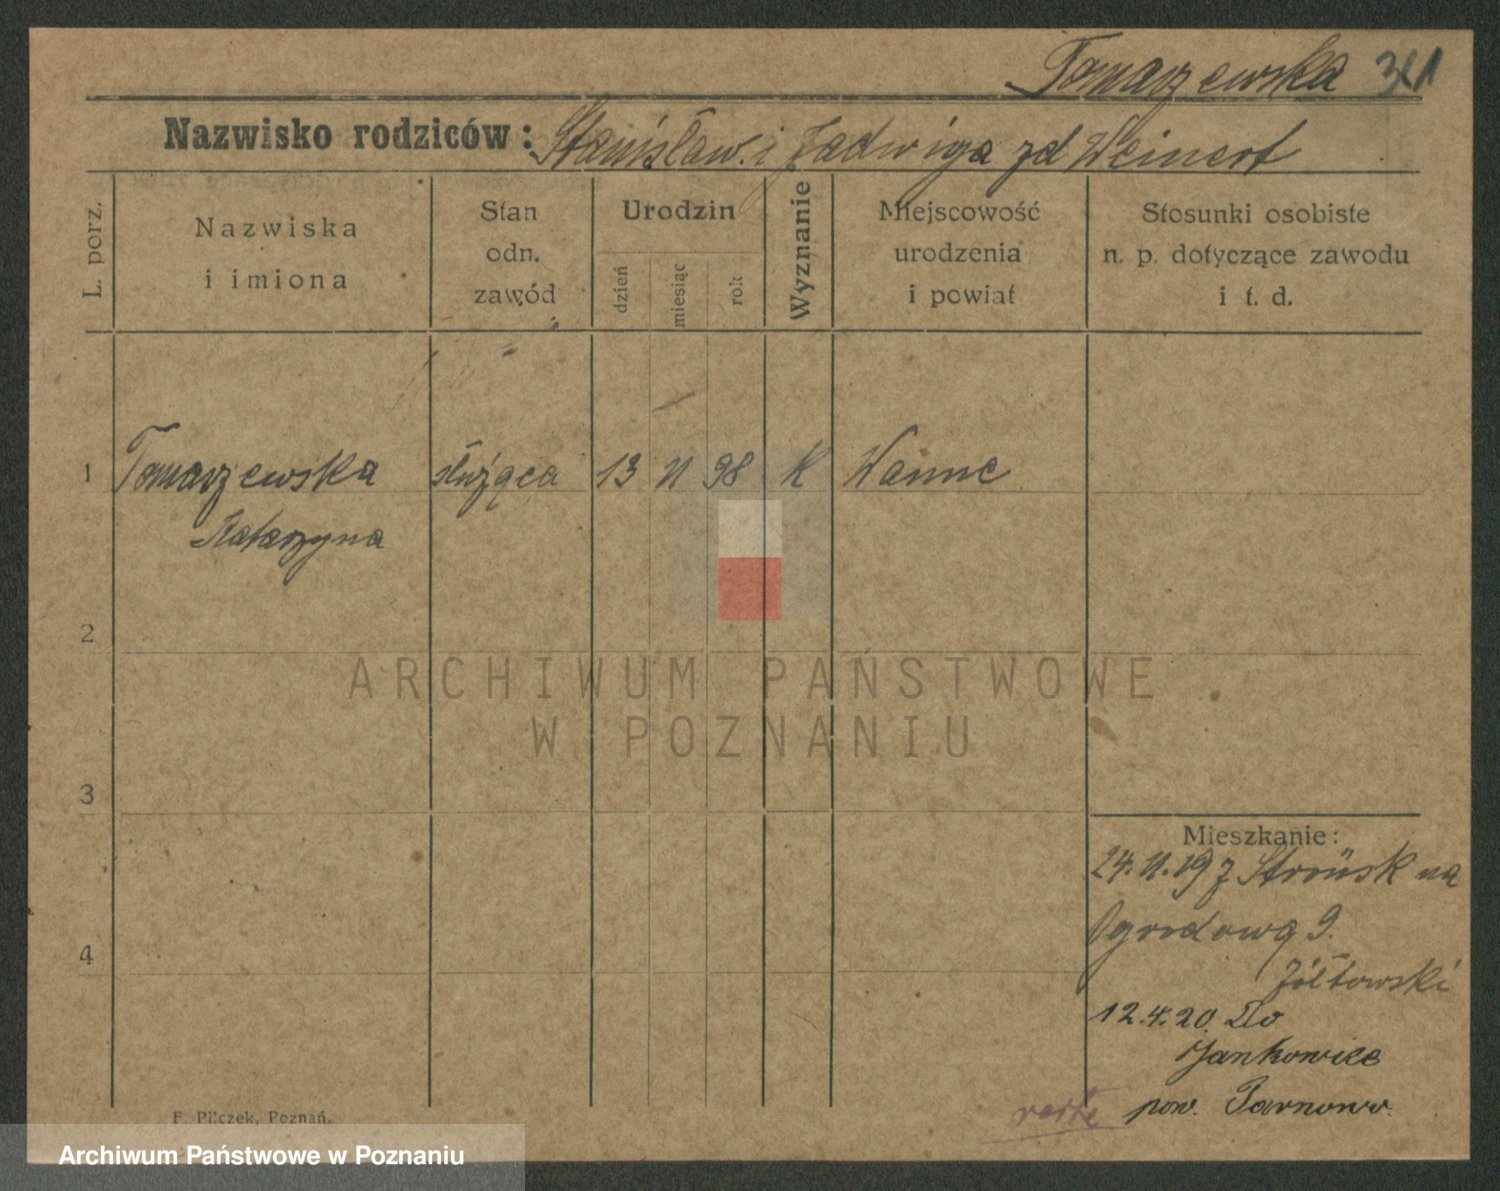 Tomaszewska
Nazwisko rodziców: Stanisław i Jadwiga zd Weinert
L. porz.
Nazwiska
i imiona
Stan
odn.
zawód
Urodzin
dzień
miesiąc
rok
Wyznanie
Miejscowość
urodzenia
i powiat
Stosunki osobiste
n. p. dotyczące zawodu
i t. d.
1 Tomaszewska służąca 13 11 98 K Wanne
Katarzyna
2
ARCHIWUM PAŃSTWOWE
W POZNANIU
3
Mieszkanie:
24.11.19 z na
4
Ogrodową 9.
Żółtowski
12.4.20. Do
Jankowice
pow. Tarnowo.
F. Pilczek, Poznań.
Archiwum Państwowe w Poznaniu